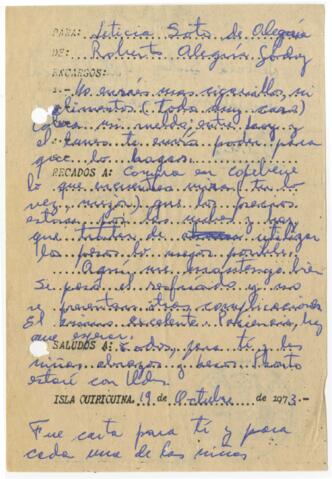 PARA: Leticia Soto de Alegría
DE: Roberto Alegría Godoy
ENCARGOS:
1.- No envíes mas cigarrillos, ni
alimentos (todo muy caro)
mi sueldo; entre hoy y
el lunes te envío poder para
que lo hagas.
RECADOS A: Compra en
lo que (tu lo
ves, mejor) que los precios
estarán por las nubes y hay
que tratar de utilizar
los pesos lo mejor posible.
Aquí, me mantengo bien
Se pasó el resfriado y no
se presentan otras complicaciones
El ánimo excelente. Paciencia, hay
que esperar.
SALUDOS A: Todos, para ti y las
niñas abrazos y besos. Pronto
estaré con Uds.
ISLA QUIRIQUINA, 19 de Octubre de 1973.-
Fue carta para ti y para
cada una de las niñas